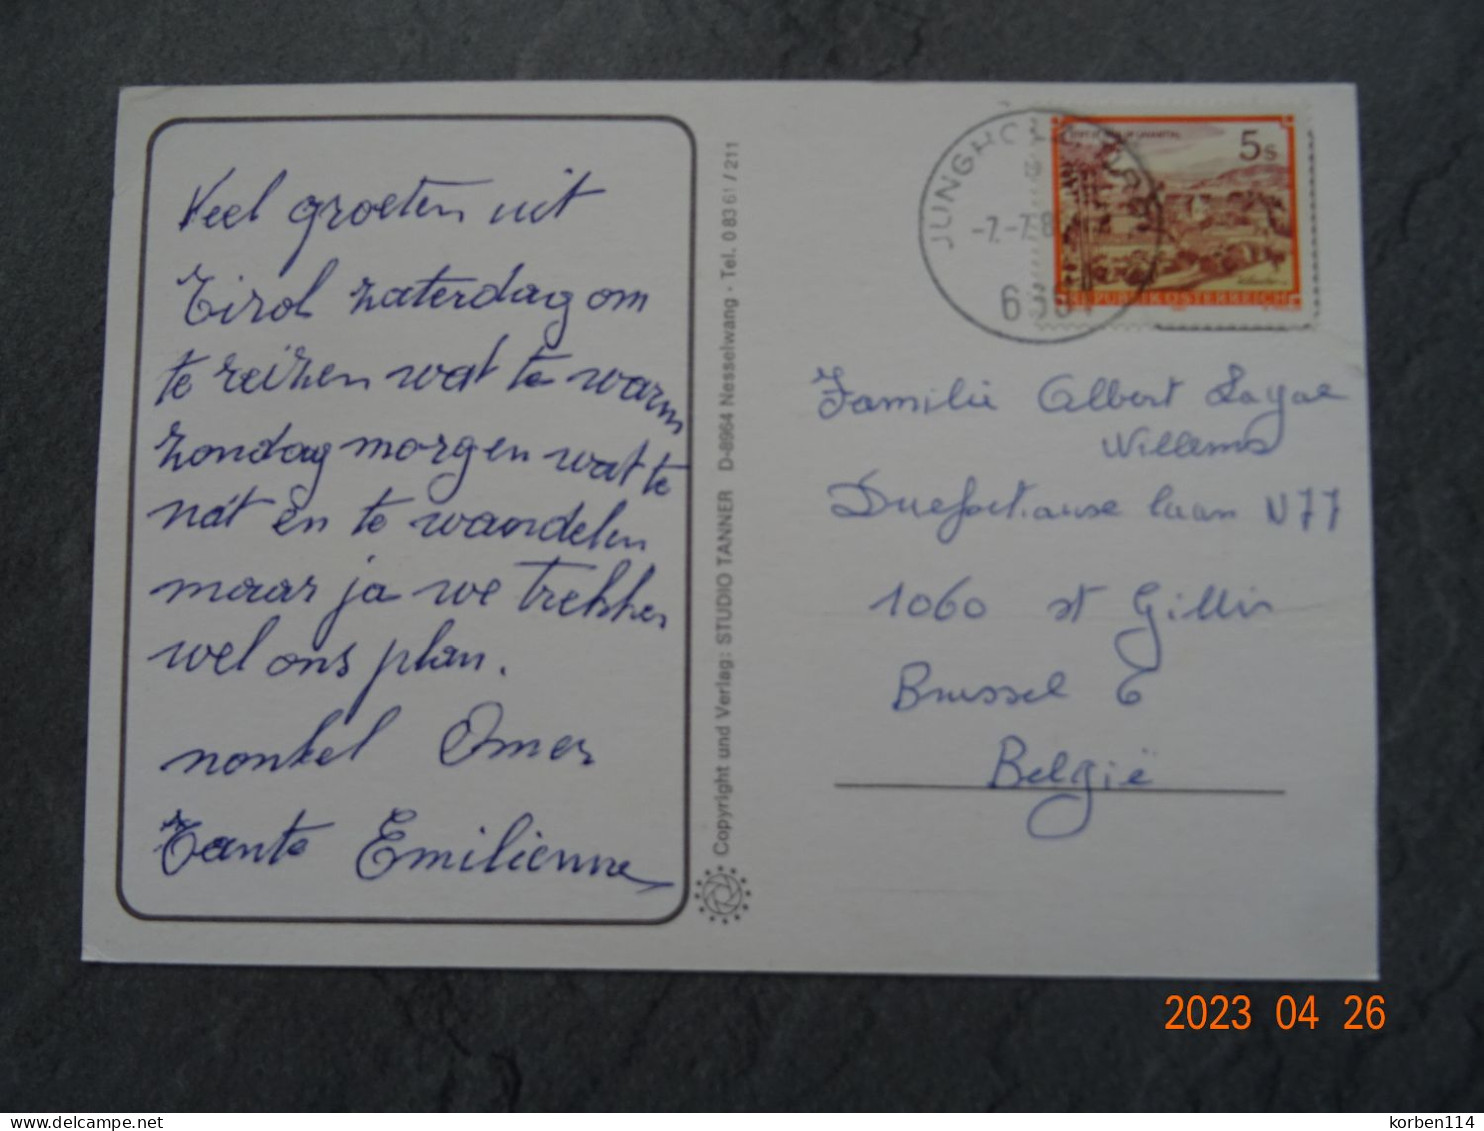 Veel groeten uit
Tirol zaterdag om
te reizen wat te warm
zondag morgen wat te
nat en te wandelen
maar ja we trekken
wel ons plan.
nonkel Omer
Tante Emilienne
Copyright und Verlag: STUDIO TANNER D-8964 Nesselwang · Tel. 0 83 61 / 211
JUNGHOLZ
-7.-7.8
5s
REPUBLIK ÖSTERREICH
Familie Albert
Willems
laan N77
1060 st Gillis
Brussel 6
België
2023 04 26
korben114